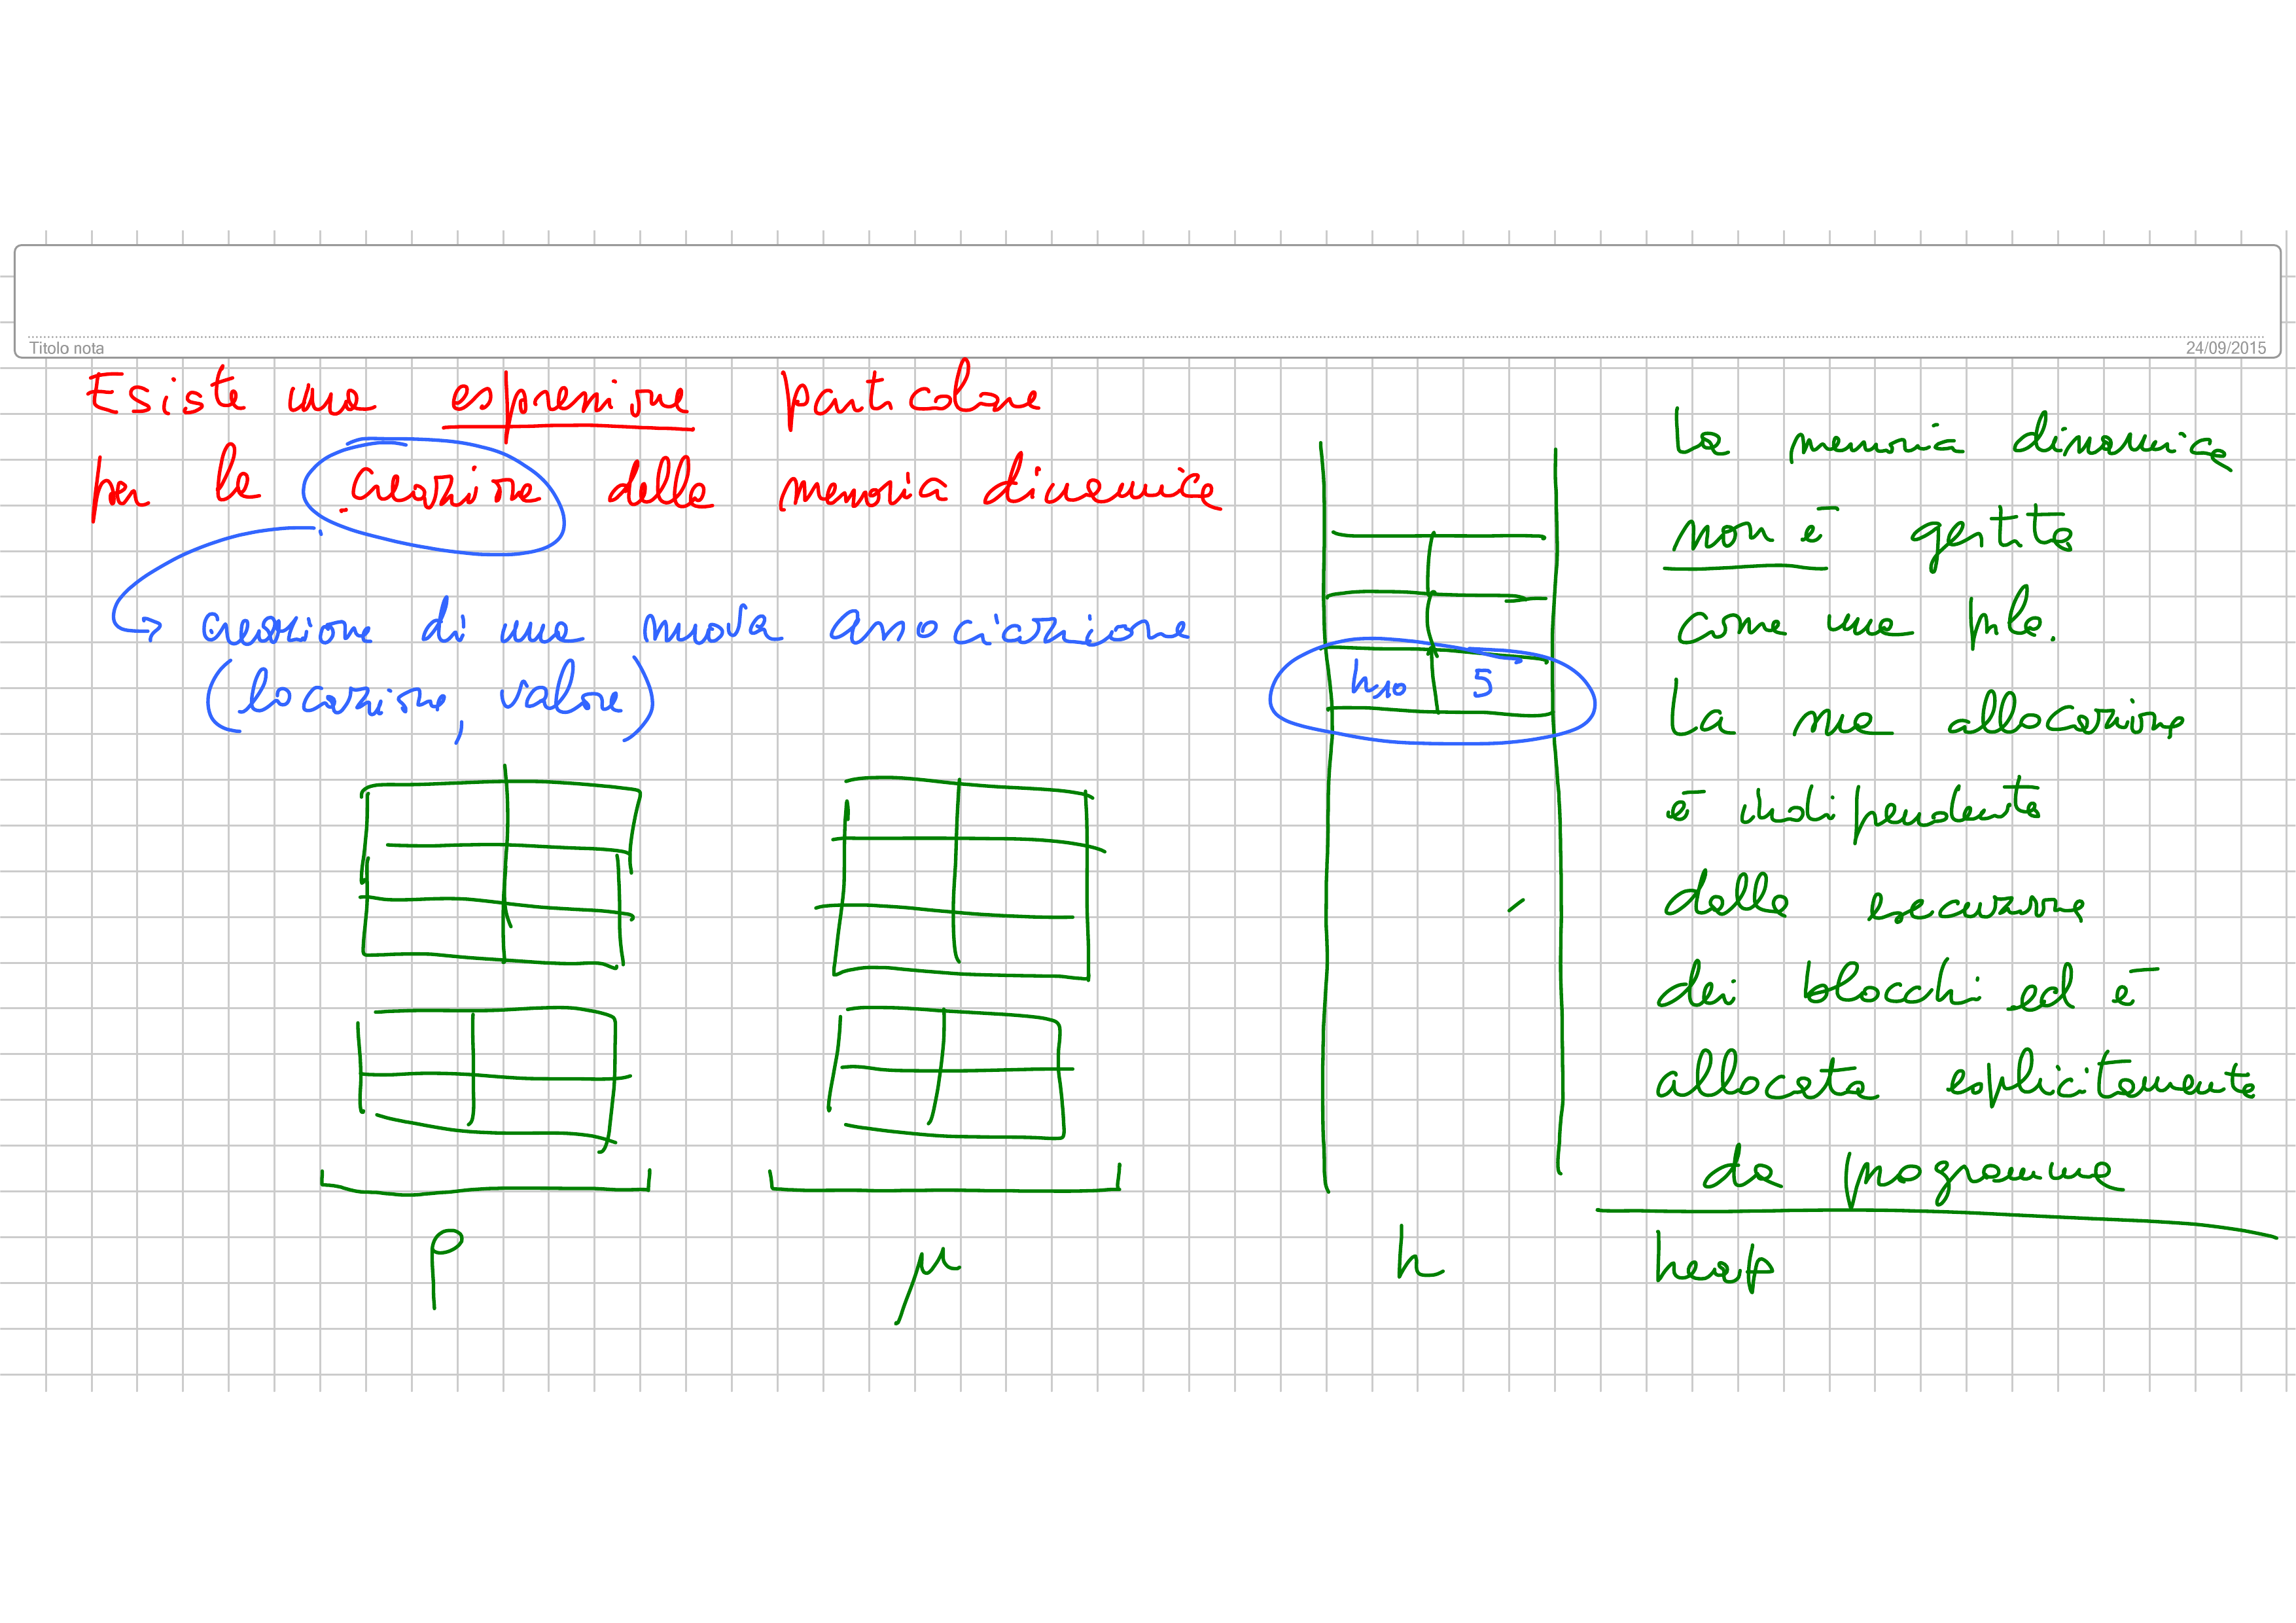 Titolo nota
24/09/2015
Esiste una espressione particolare
per la creazione della memoria dinamica
creazione di una nuova associazione
(locazione, valore)
5
ρ
μ
h
La memoria dinamica
non è gestita
come una pila.
La sua allocazione
è indipendente
dalla esecuzione
dei blocchi ed è
allocata esplicitamente
da programma
heap